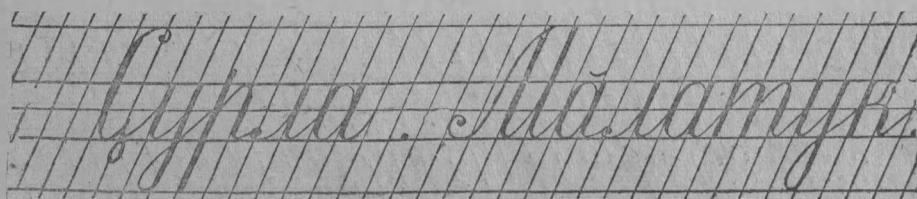 Ҫурла. Мӑлатук